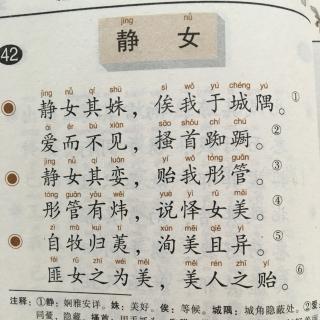 jìng nǚ
静 女
42
jìng nǚ qí shū sì wǒ yú chéng yú
静女其姝，俟我于城隅。①
ài ér bú xiàn sāo shǒu chí chú
爱而不见，搔首踟蹰。②
jìng nǚ qí luán yí wǒ tóng guǎn
静女其娈，贻我彤管。③
tóng guǎn yǒu wěi yuè yì rǔ měi
彤管有炜，说怿女美。④
zì mù kuì tí xún měi qiě yì
自牧归荑，洵美且异。⑤
fěi rǔ zhī wéi měi měi rén zhī yí
匪女之为美，美人之贻。⑥
注释：①静：娴雅安详。姝：美好。俟：等候。城隅：城角隐蔽处。②